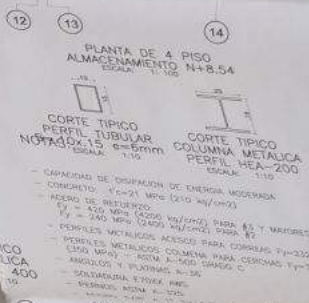 12
13
14
PLANTA DE 4 PISO
ALMACENAMIENTO N+8.54
ESCALA: 1: 100
CORTE TIPICO
PERFIL TUBULAR
10x.15 e=6mm
NOTAS
ESCALA: 1:10
CORTE TIPICO
COLUMNA METALICA
PERFIL HEA-200
ESCALA: 1:10
- CAPACIDAD DE DISIPACION DE ENERGIA MODERADA
- CONCRETO: f'c=21 MPa (210 kg/cm2)
- ACERO DE REFUERZO:
Fy = 420 MPa (4200 kg/cm2) PARA #3 Y MAYORES
Fy = 240 MPa (2400 kg/cm2) PARA #2
- PERFILES METALICOS ACESCO PARA CORREAS Fy=
- PERFILES METALICOS COLMENA PARA CERCHAS Fy=
(350 MPa) - ASTM A-500 GRADO C
- ANGULOS Y PLATINAS A-36
- SOLDADURA E70XX AWS
- PERNOS ASTM A-325
ICO
LICA
400
10